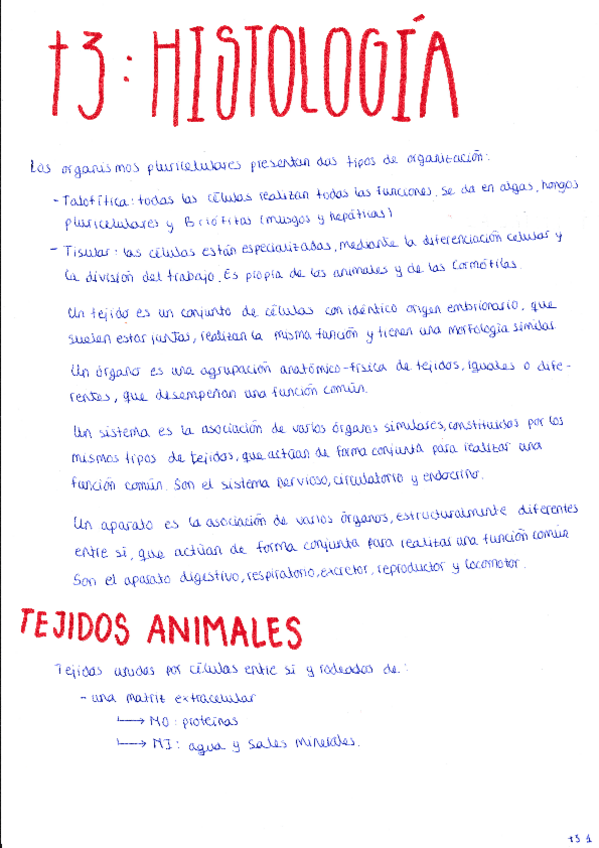 t3: HISTOLOGÍA
Los organismos pluricelulares presentan dos tipos de organización:
- Talofítica: todas las células realizan todas las funciones. Se da en algas, hongos
pluricelulares y Briófitas (musgos y hepáticas)
- Tisular: las células están especializadas, mediante la diferenciación celular y
la división del trabajo. Es propia de los animales y de las Cormófitas.
Un tejido es un conjunto de células con idéntico origen embrionario, que
suelen estar juntas, realizan la misma función y tienen una morfología similar.
Un órgano es una agrupación anatómico-física de tejidos, iguales o dife-
rentes, que desempeñan una función común.
Un sistema es la asociación de varios órganos similares, constituidos por los
mismos tipos de tejidos, que actúan de forma conjunta para realizar una
función común. Son el sistema nervioso, circulatorio y endocrino.
Un aparato es la asociación de varios órganos, estructuralmente diferentes
entre si, que actúan de forma conjunta para realizar una función común
Son el aparato digestivo, respiratorio, excretor, reproductor y locomotor.
TEJIDOS ANIMALES
Tejidos unidos por células entre si y rodeados de:
- una matriz extracelular
↳ MO: proteínas
↳ MI: agua y sales minerales.
t3 1